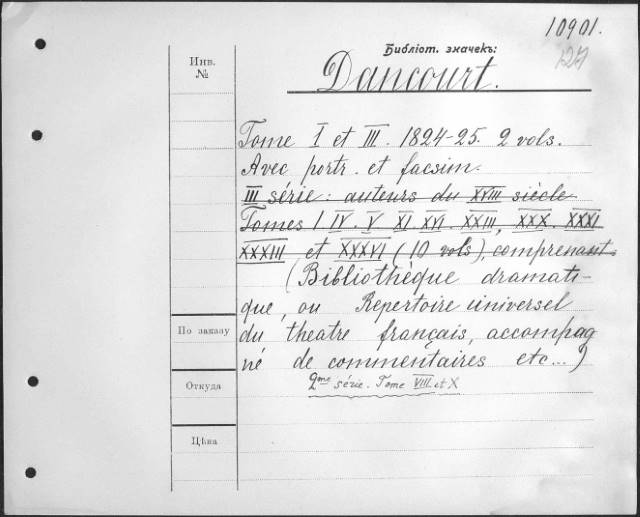 10901.
127
Библіот. значекъ:
Dancourt.
Инв.
№
Tome I et III. 1824-25. 2 vols.
Avec portr. et facsim.
III série: auteurs du XVIII siècle.
Tomes I. IV. V. XI. XVI. XXIII, XXX. XXXI
XXXIII et XXXVI (10 vols), comprenant:
(Bibliothèque dramati-
que, ou Repertoire universel
По заказу
du theatre français, accompag
né de commentaires etc...)
Откуда
2me série. Tome VIII et X
Цѣна